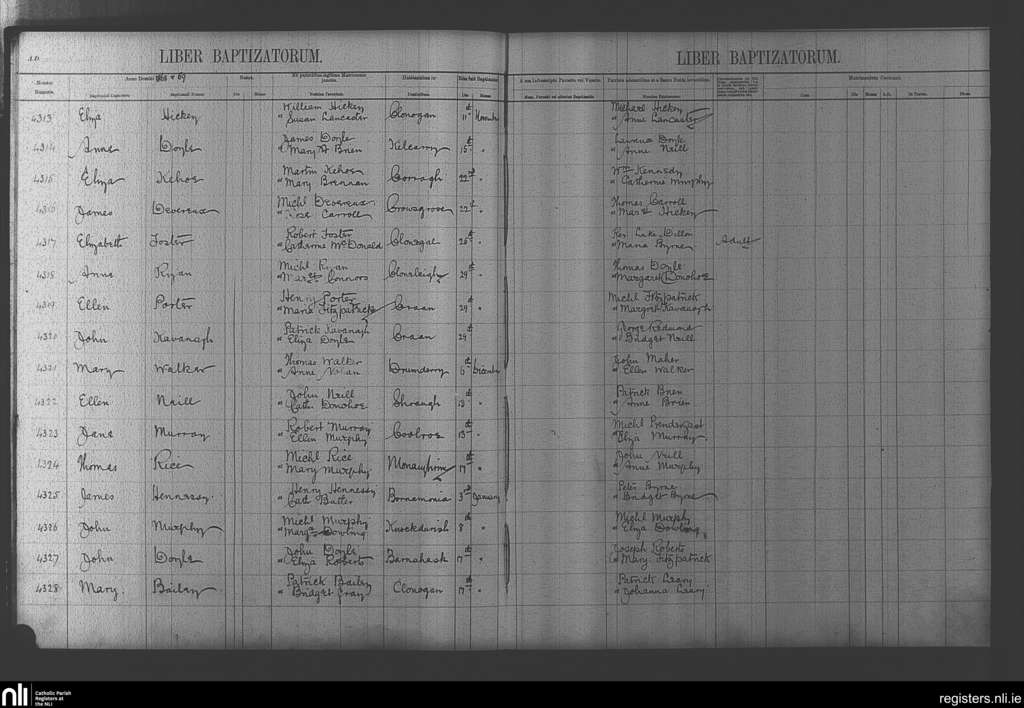 LIBER BAPTIZATORUM.
LIBER BAPTIZATORUM.
A.D.
Anno Domini 1868 & 69
4313 Eliza Hickey William Hickey Clonogan 11th November Michael Hickey
" Susan Lancaster " Anne Lancaster
4314 Anne Doyle James Doyle Kilcarry 15th " Laurence Doyle
" Mary A Brien " Anne Neill
4315 Eliza Kehoe Martin Kehoe Corragh 22nd " Wm Kennedy
" Mary Brennan " Catherine Murphy
4316 James Devereux Michl Devereux Crowsgrove 22d " Thomas Carroll
" Rose Carroll " Margt Hickey
4317 Elizabeth Foster Robert Foster Clonegal 26th " Rev Luke Dillon Adult
" Catharine McDonald " Maria Byrne
4318 Anne Ryan Michl Ryan 29th " Thomas Doyle
" Margt Connors " Margaret Donohoe
4319 Ellen Porter Henry Porter Craan 29th " Michl Fitzpatrick
" Maria Fitzpatrick " Margaret Kavanagh
4320 John Kavanagh Patrick Kavanagh Craan 29th George Redmond
" Eliza Doyle " Bridget Neill
4321 Mary Walker Thomas Walker Drumderry 6th December John Maher
" Anne " Ellen Walker
4322 Ellen Neill John Neill Shroughh 13th " Patrick Brien
" Cath. Donohoe " Anne Brien
4323 Jane Murray Robert Murray Coolroe 13th " Michl Prendergast
" Ellen Murphy " Eliza Murray
4324 Thomas Rice Michl Rice 17th " John Neill
" Mary Murphy " Anne Murphy
4325 James Hennessy Henry Hennessy Bornamonia 3rd January Peter Byrne
" Cath Butler " Bridget Byrne
4326 John Murphy Michl Murphy 8th " Michl Murphy
" Margt Dowling " Eliza Dowling
4327 John Doyle John Doyle Barnahask 17th " Joseph Roberts
" Eliza Roberts " Mary Fitzpatrick
4328 Mary Bailey Patrick Bailey Clonogan 17th " Patrick Leary
" Bridget Gray " Johanna Leary
nli Catholic Parish
Registers at
the NLI
registers.nli.ie